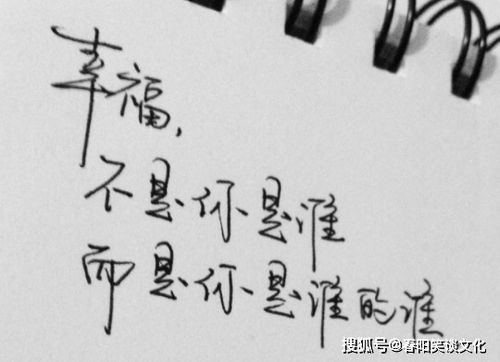 幸福,
不是你是谁
而是你是谁的谁
搜狐号@春阳笑谈文化